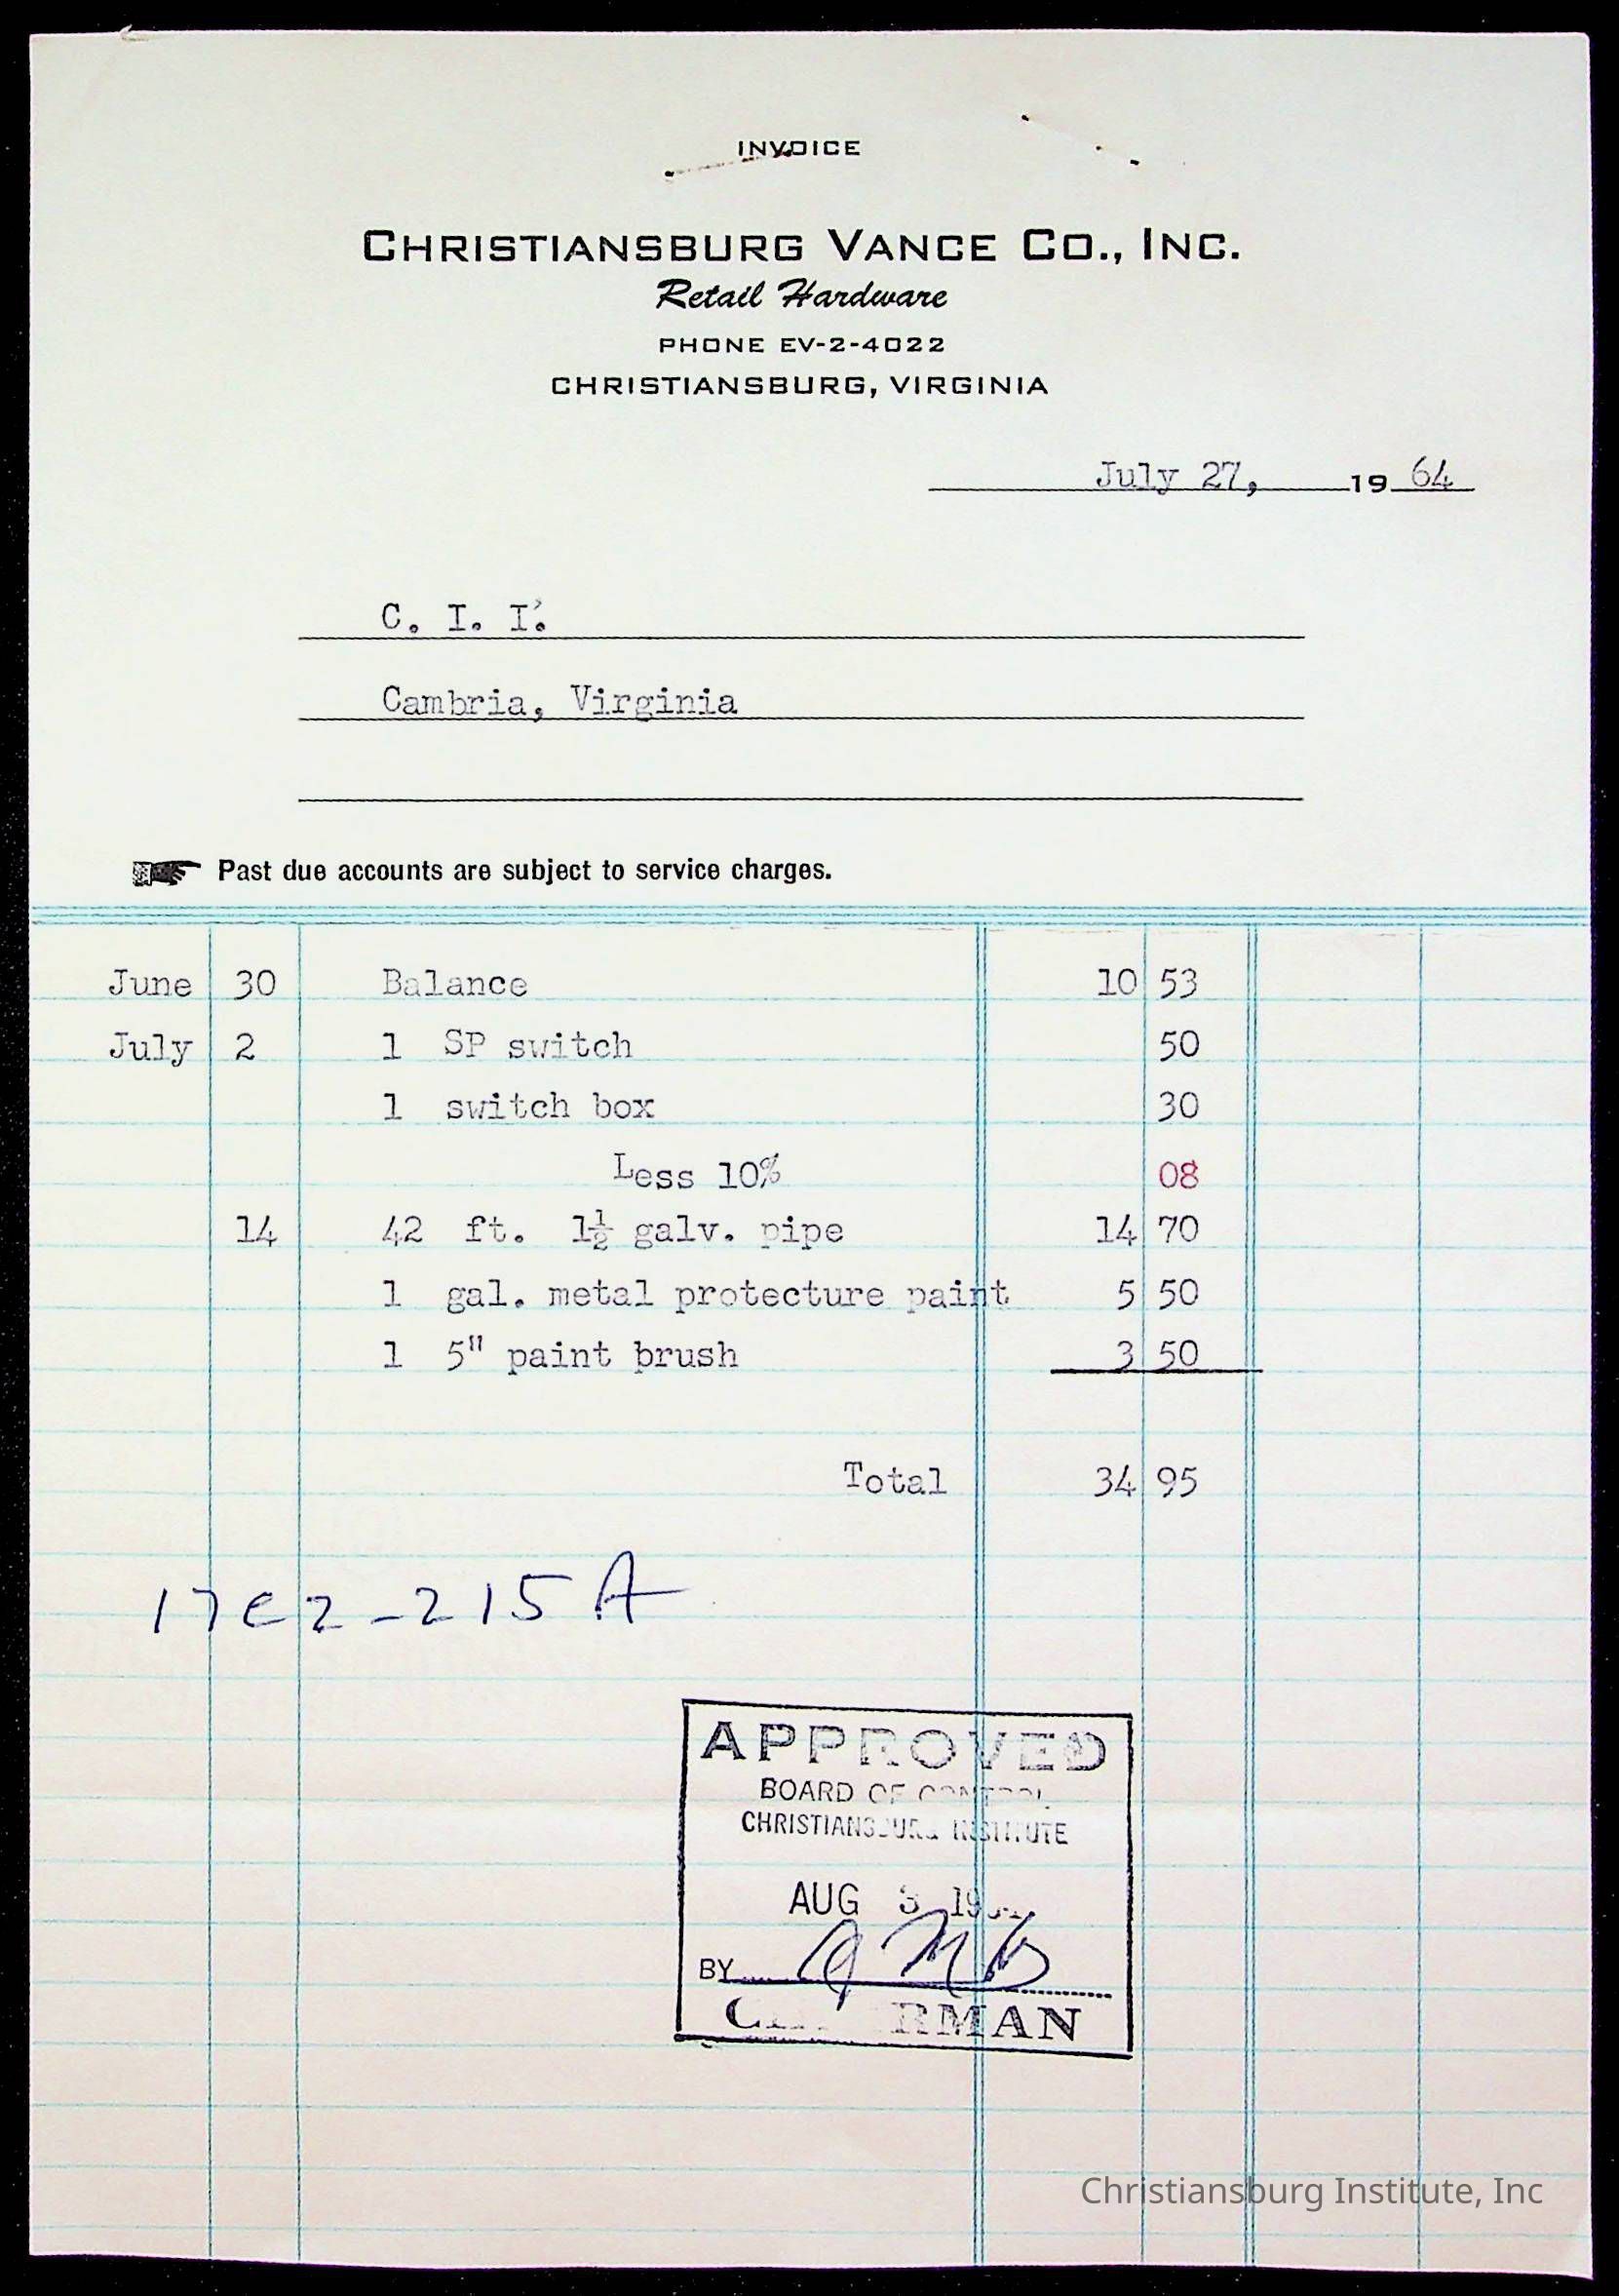 INVOICE
CHRISTIANSBURG VANCE CO., INC.
Retail Hardware
PHONE EV-2-4022
CHRISTIANSBURG, VIRGINIA
July 27, 19 64
C. I. I.
Cambria, Virginia
Past due accounts are subject to service charges.
June 30 Balance 10 53
July 2 1 SP switch 50
1 switch box 30
Less 10% 08
14 42 ft. 1½ galv. pipe 14 70
1 gal. metal protecture paint 5 50
1 5" paint brush 3 50
Total 34 95
17e2-215A
APPROVED
BOARD OF CONTROL
CHRISTIANSBURG INSTITUTE
AUG 3
BY
CHAIRMAN
Christiansburg Institute, Inc